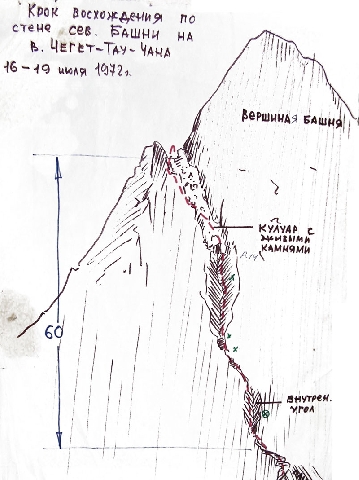 Крок восхождения по
стене сев. Башни на
в. Чегет-Тау-Чана
16-19 июля 1972г.
Вершинная башня
Кулуар с
живыми
камнями
60
внутрен.
угол